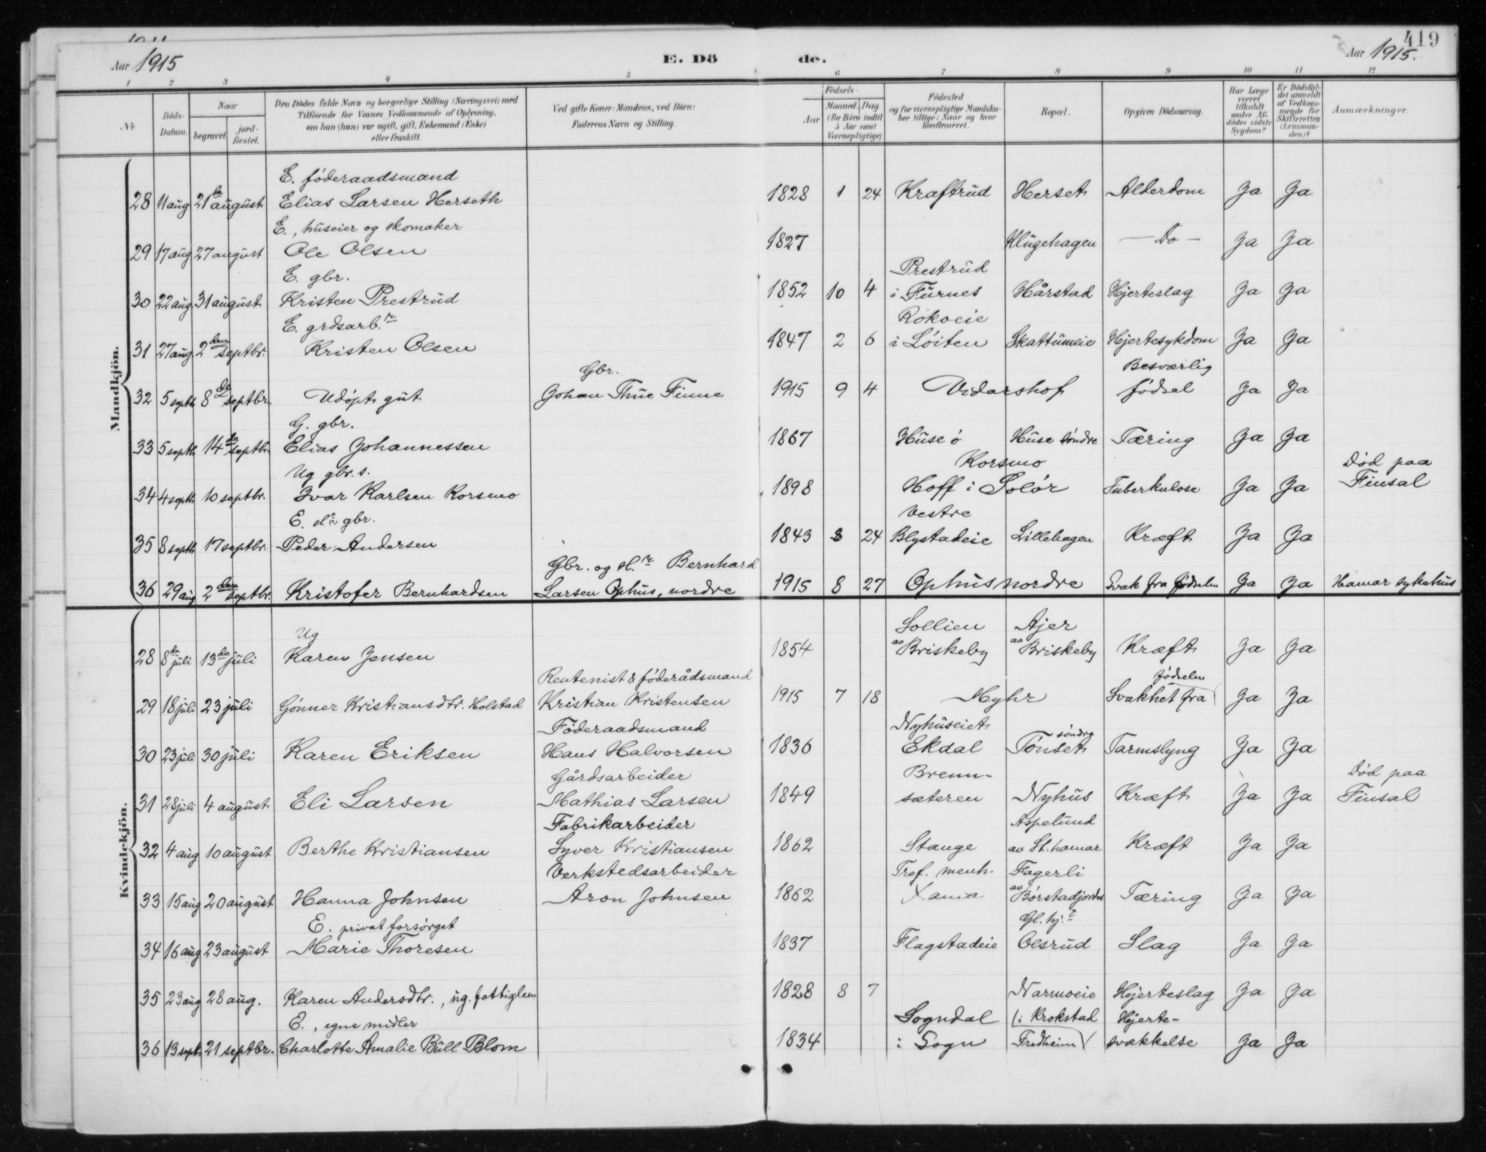 419
Aar 1915 E. Döde. Aar 1915.
1 2 3 4 5 6 7 8 9 10 11 12
№ Döds-Datum. Naar begravet. jord-fæstet. Den Dödes fulde Navn og borgerlige Stilling (Næringsvei) med Tilföiende for Voxnes Vedkommende af Oplysning, om han (hun) var ugift, gift, Enkemand (Enke) eller fraskilt. Ved gifte Koner: Mandens, ved Börn: Faderens Navn og Stilling. Födsels- Aar Maaned. Dag (for Börn indtil 5 Aar samt Værnepligtige) Födested og for værnepligtige Mandskaber tillige: Naar og hvor konstitueret. Bopæl. Opgiven Dödsaarsag. Har Læge været tilkaldt under Afdödes sidste Sygdom? Er Dödsfaldet anmeldt af Vedkommende for Skifteretten (Lensmanden)? Anmærkninger.
Mandkjön.
E. föderaadsmand
28 11 aug 21 de august Elias Larsen Herseth 1828 1 24 Kraftrud Herset Alderdom Ja Ja
E., huseier og skomaker
29 17 aug 27 august Ole Olsen 1827 Klugehagen — Do — Ja Ja
E. gbr. Prestrud
30 22 aug 31 august Kristen Prestrud 1852 10 4 i Furnes Hårstad Hjerteslag Ja Ja
E. grdsarb.r Rokoeie
31 27 aug 2 den septbr. Kristen Olsen 1847 2 6 i Löiten Skattumeie Hjertesykdom Ja Ja
Gbr. Besværlig
32 5 septbr. 8 de septbr. Udöpt gut Johan Thue Finne 1915 9 4 Vidarshof födsel Ja Ja
G. gbr.
33 5 septbr. 14 de septbr. Elias Johannessen 1867 Huse ö Huse söndre Tæring Ja Ja
Ug gbr. s. Korsmo Död paa
34 4 septbr. 10 septbr. Ivar Karlsen Korsmo 1898 Hoff i Solör Tuberkulose Ja Ja Finsal
E. gbr. Vestre
35 8 septbr. 17 septbr. Peder Andersen 1843 8 24 Blystadeie Lillehagen Kræft Ja Ja
Gbr. og Bernhard
36 29 aug 2 den septbr. Kristofer Bernhardsen Larsen Ophus, nordre 1915 8 27 Ophus nordre Svak fra födselen Ja Ja Hamar sykehus
Kvindekjön.
Ug Sollien Ajer
28 8 de juli 13 de juli Karen Jensen 1854 av Briskeby av Briskeby Kræft Ja Ja
Rentenist & föderådsmand födselen
29 18 juli 23 juli Gönner Kristiansdtr. Holstad Kristian Kristensen 1915 7 18 Myhr Svakhet fra Ja Ja
Föderaadsmand Nyhuseiet söndre
30 23 juli 30 juli Karen Eriksen Hans Halvorsen 1836 Ekdal Tönset Tarmslyng Ja Ja
Gårdsarbeider Brenn- Död paa
31 28 juli 4 august Eli Larsen Mathias Larsen 1849 sæteren Nyhus Kræft Ja Ja Finsal
Fabrikarbeider Aspelund
32 4 aug 10 august Berthe Kristiansen Syver Kristiansen 1862 Stange av St. hamar Kræft Ja Ja
Verkstedsarbeider Tref. menh. Fagerli
33 15 aug 20 august Hanna Johnsen Aron Johnsen 1862 Xania av Börstadjordet Tæring Ja Ja
E. privat forsörget Gl. hj.
34 16 aug 23 august Marie Thoresen 1837 Flagstadeie Olsrud Slag Ja Ja
35 23 aug 28 aug. Karen Andersdtr., ug. fattiglem 1828 8 7 Narmoeie Hjerteslag Ja Ja
E., egne midler Sogndal (i Krokstad Hjerte-
36 13 sept. 21 septbr. Charlotte Amalie Büll Blom 1834 i Sogn Fredheim svækkelse Ja Ja